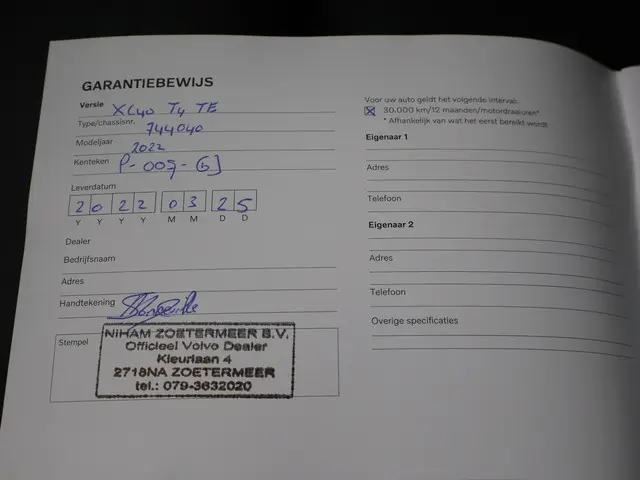 GARANTIEBEWIJS
Versie XC40 T4 TE
Type/chassisnr. 744040
Modeljaar 2022
Kenteken P-007-GJ
Leverdatum
2 0 2 2 0 3 2 5
Y Y Y Y M M D D
Dealer
Bedrijfsnaam
Adres
Handtekening
Stempel
NIHAM ZOETERMEER B.V.
Officieel Volvo Dealer
Kleurlaan 4
2718NA ZOETERMEER
tel.: 079-3632020
Voor uw auto geldt het volgende interval:
30.000 km/12 maanden/motordraaiuren*
* Afhankelijk van wat het eerst bereikt wordt
Eigenaar 1
Adres
Telefoon
Eigenaar 2
Adres
Telefoon
Overige specificaties